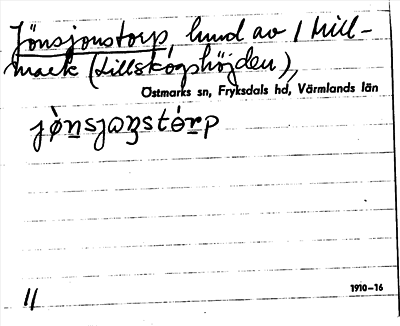 Jönsjonstorp, hmd av 1 Lill-
mark (Lillskogshöjden),
Östmarks sn, Fryksdals hd, Värmlands län
jö̀nsjɷnstórp
11
1910–16